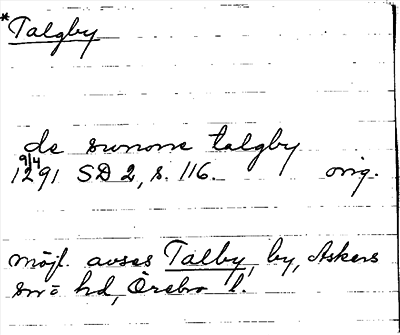 *Talgby
de sunone talgby
9/4
1291 SD 2, s. 116. orig.
möjl. avses Talby, by, Askers
hd, Örebro l.